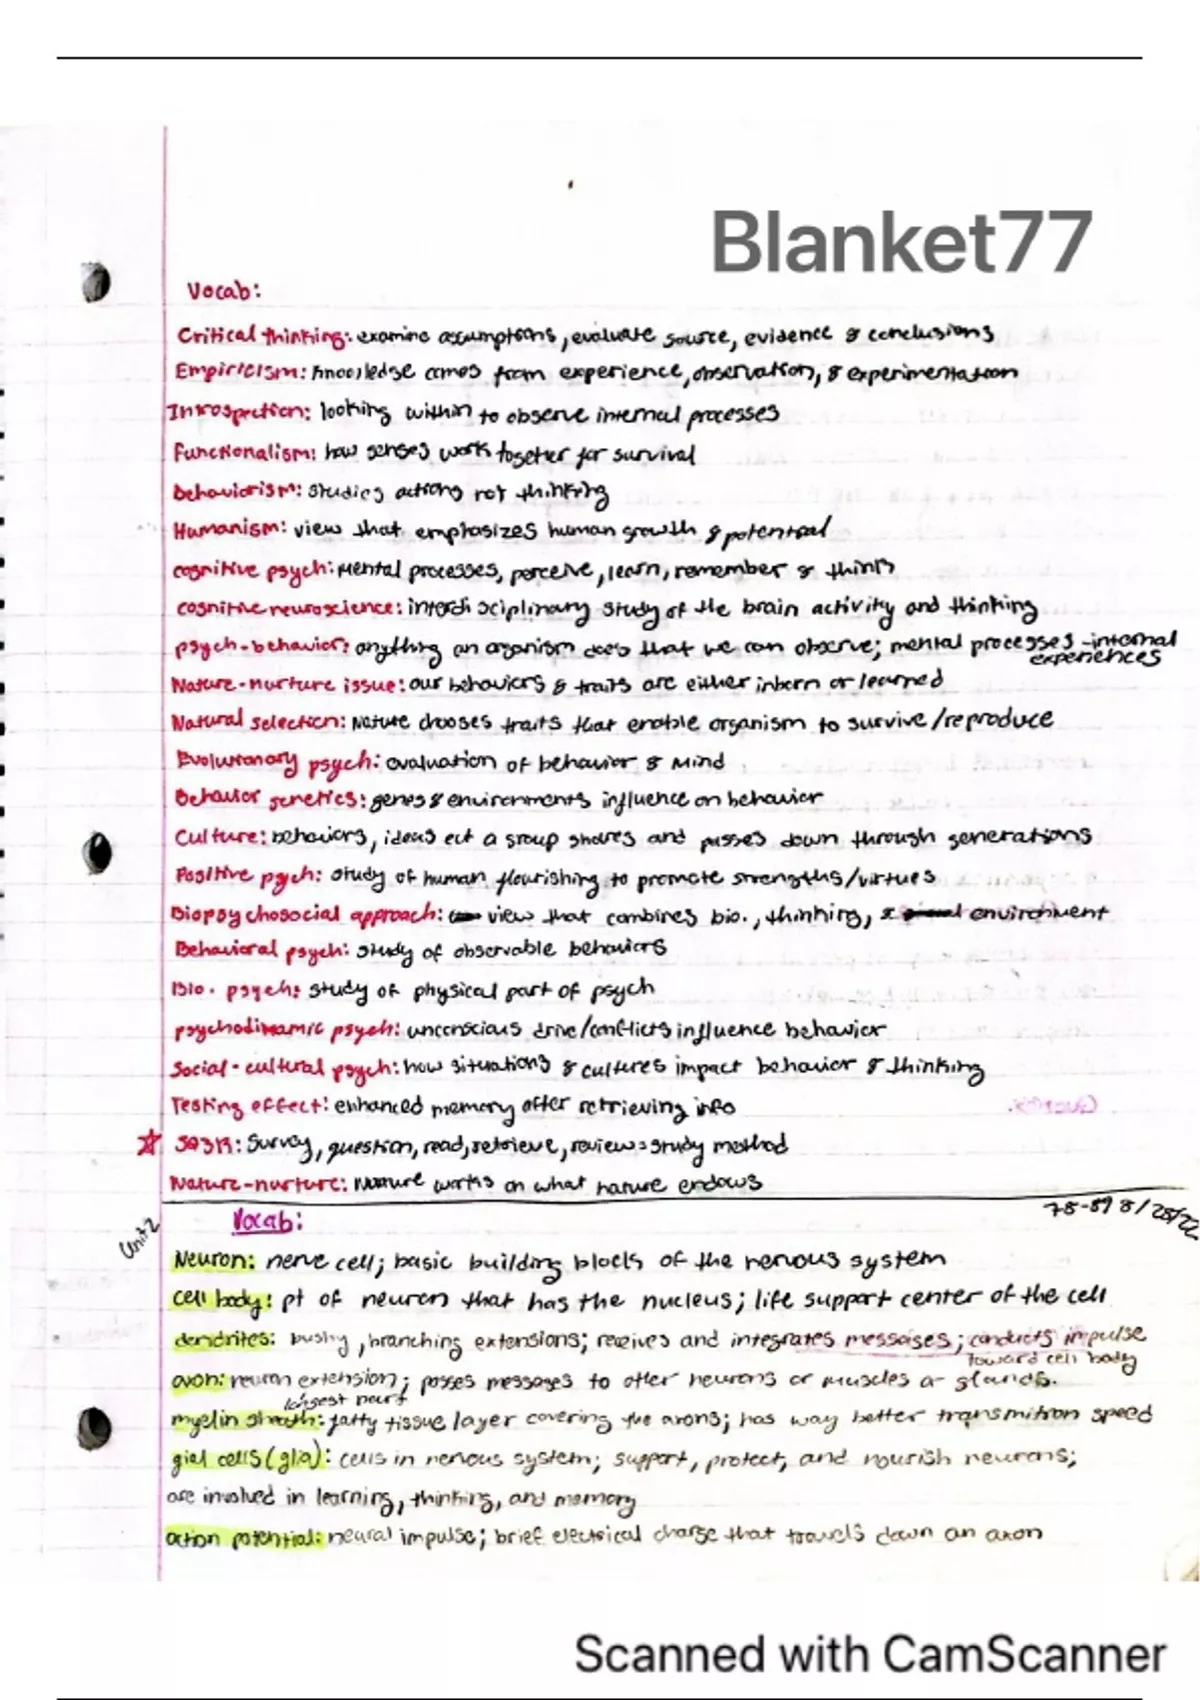 Blanket77
Vocab:
Critical thinking: examine assumptions, evaluate source, evidence & conclusions
Empiricism: knowledge comes from experience, observation, & experimentation
Introspection: looking within to observe internal processes
Functionalism: how senses work together for survival
Behaviorism: studies actions not thinking
Humanism: view that emphasizes human growth & potential
cognitive psych: mental processes, perceive, learn, remember & think
cognitive neuroscience: interdisciplinary study of the brain activity and thinking
psych-behavior: anything an organism does that we can observe; mental processes - internal
experiences
Nature-nurture issue: our behaviors & traits are either inborn or learned
Natural selection: Nature chooses traits that enable organism to survive/reproduce
Evolutionary psych: evaluation of behavior & Mind
Behavior genetics: genes & environments influence on behavior
Culture: behaviors, ideas ect a group shares and passes down through generations
Positive psych: study of human flourishing to promote strengths/virtues
Biopsychosocial approach: view that combines bio., thinking, & environment
Behavioral psych: study of observable behaviors
Bio. psych: study of physical part of psych
psychodinamic psych: unconscious drive/conflicts influence behavior
Social-cultural psych: how situations & cultures impact behavior & thinking
Testing effect: enhanced memory after retrieving info
SQ3R: Survey, question, read, retrieve, review = study method
Nature-nurture: Nurture works on what nature endows
78-89 8/28/22
Unit 2
Vocab:
Neuron: nerve cell; basic building blocks of the nervous system
cell body: pt of neuron that has the nucleus; life support center of the cell
dendrites: bushy, branching extensions; receives and integrates messages; conducts impulse
toward cell body
axon: neuron extension; passes messages to other neurons or muscles or glands.
longest part
myelin sheath: fatty tissue layer covering the axons; has way better transmition speed
glial cells (glia): cells in nervous system; support, protect, and nourish neurons;
are involved in learning, thinking, and memory
action potential: neural impulse; brief electrical charge that travels down an axon
Scanned with CamScanner